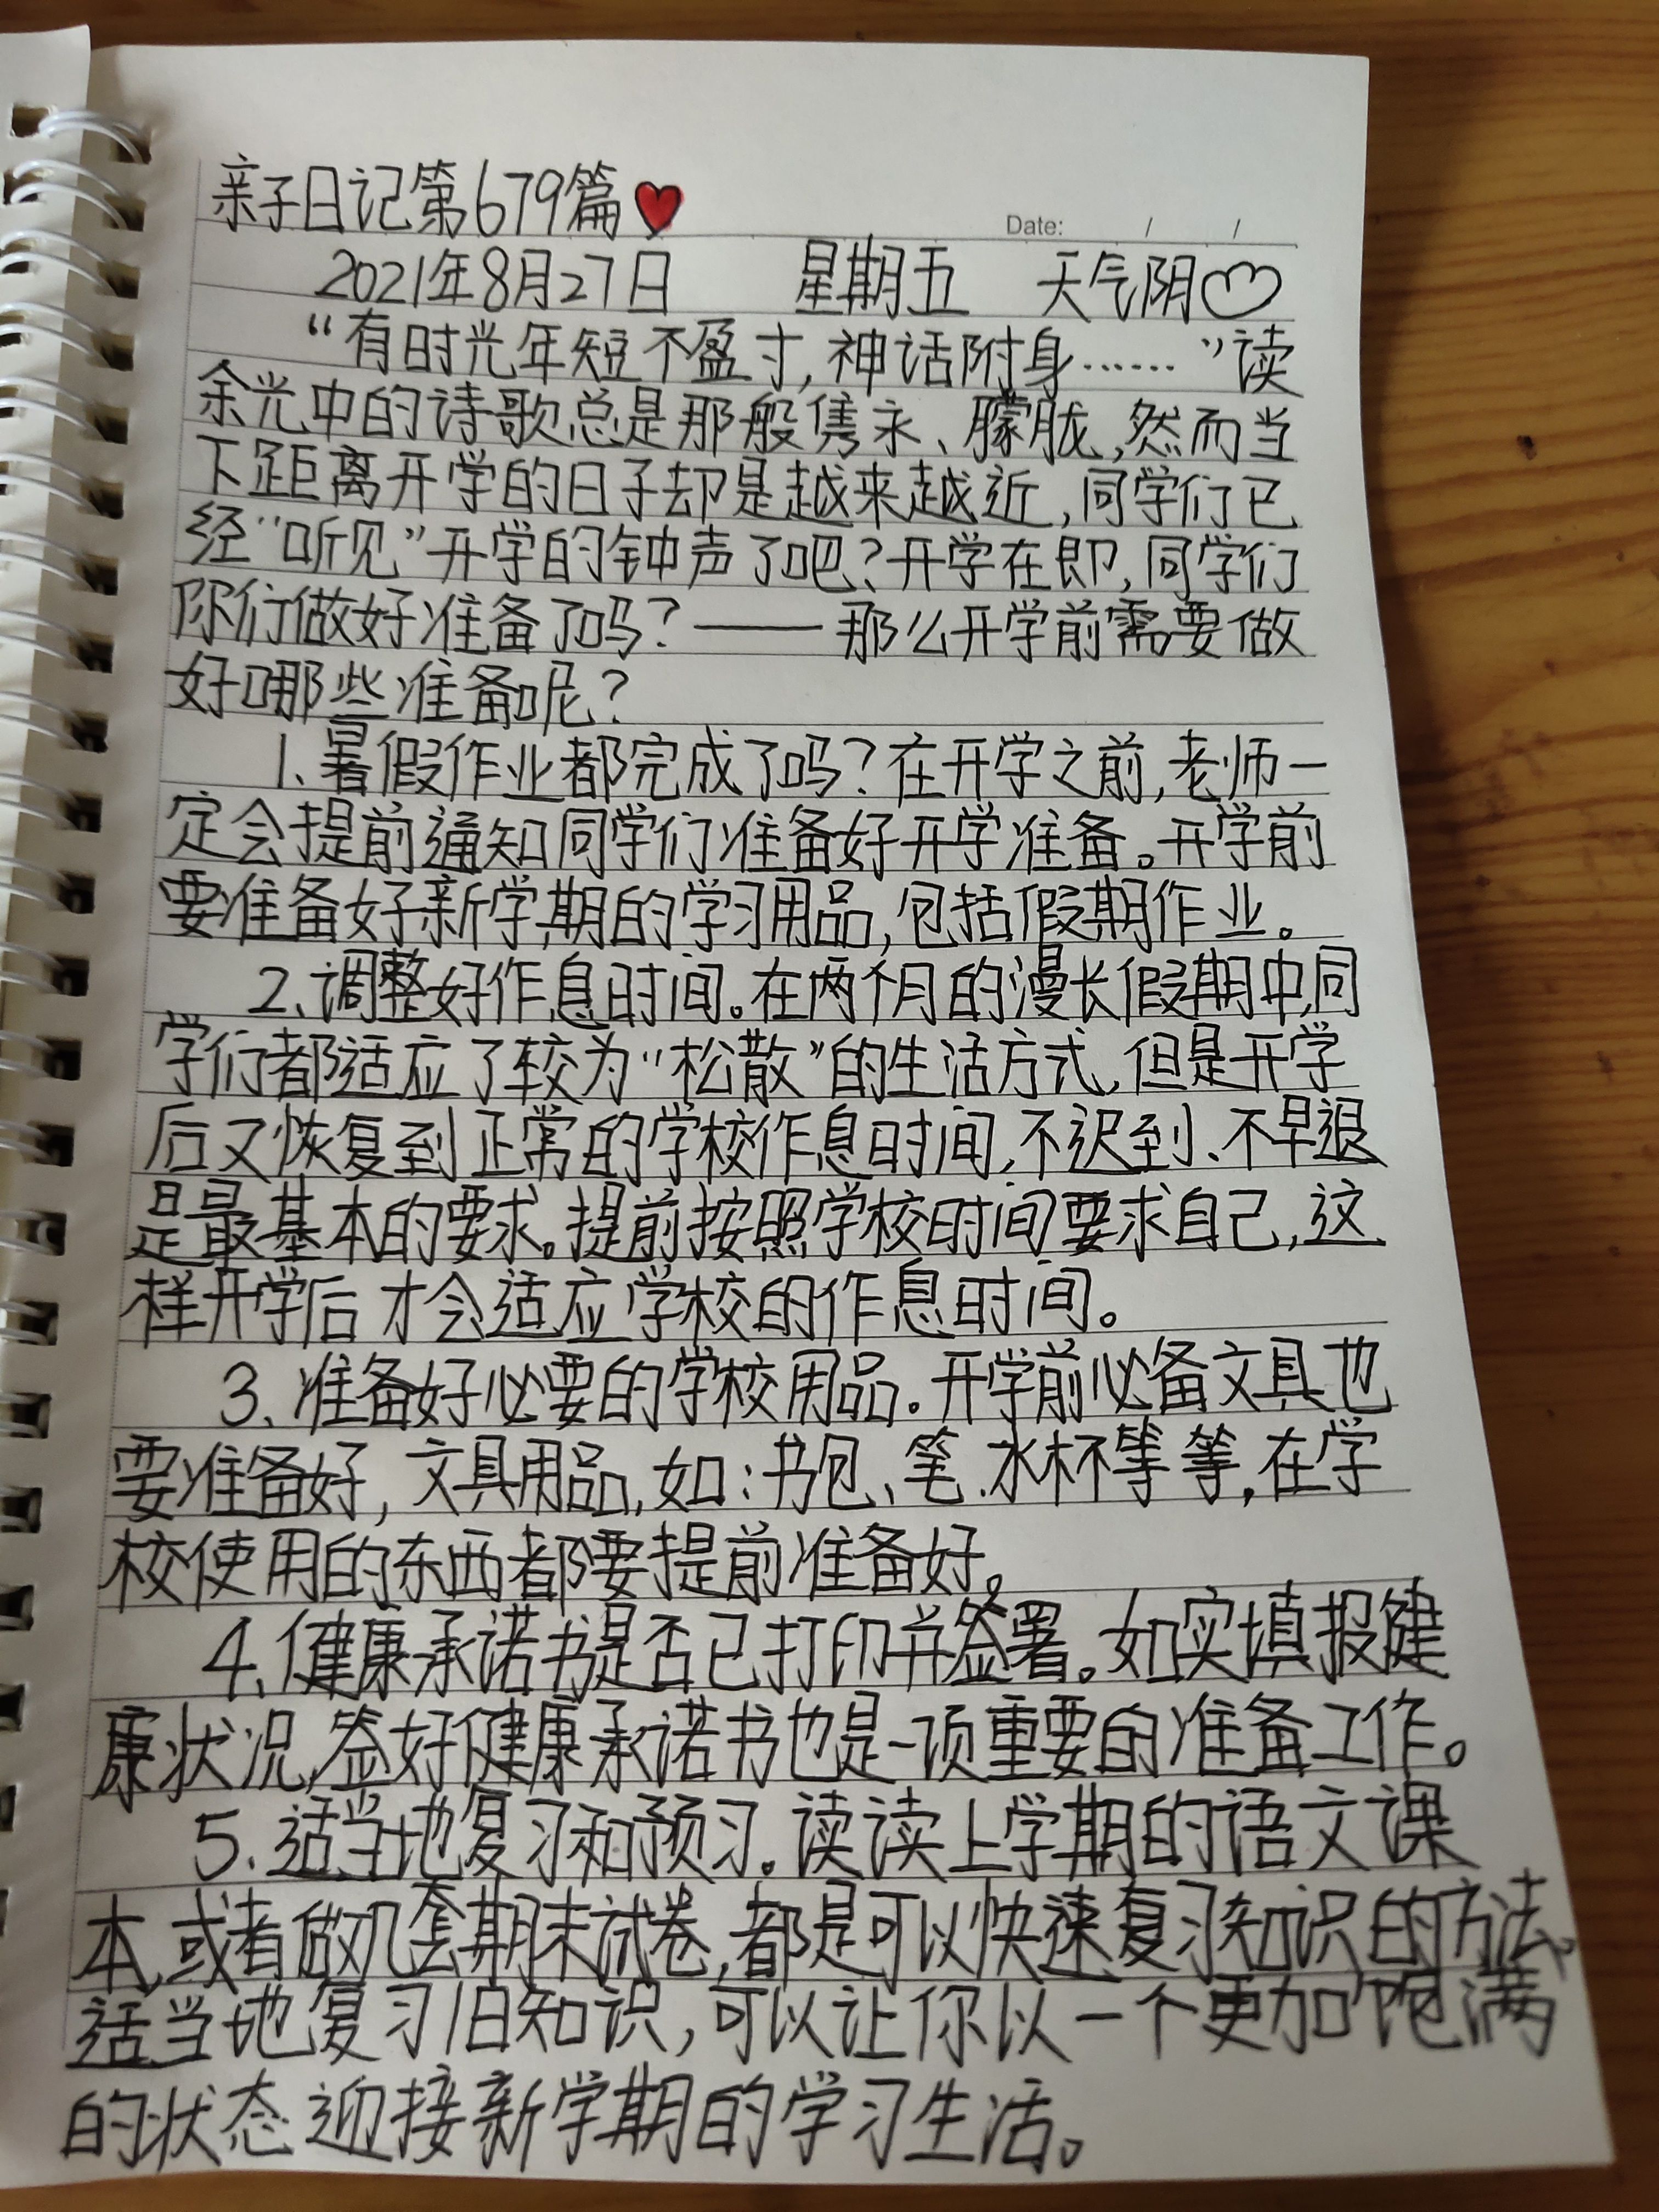 亲子日记第679篇
Date: / /
2021年8月27日 星期五 天气阴
“有时光年短不盈寸,神话附身……”读
余光中的诗歌总是那般隽永、朦胧,然而当
下距离开学的日子却是越来越近,同学们已
经“听见”开学的钟声了吧?开学在即,同学们
你们做好准备了吗?——那么开学前需要做
好哪些准备呢?
1、暑假作业都完成了吗?在开学之前,老师一
定会提前通知同学们准备好开学准备。开学前
要准备好新学期的学习用品,包括假期作业。
2、调整好作息时间。在两个月的漫长假期中,同
学们都适应了较为“松散”的生活方式,但是开学
后又恢复到正常的学校作息时间,不迟到、不早退
是最基本的要求。提前按照学校时间要求自己,这
样开学后才会适应学校的作息时间。
3、准备好必要的学校用品。开学前必备文具也
要准备好,文具用品,如:书包、笔、水杯等等,在学
校使用的东西都要提前准备好。
4、健康承诺书是否已打印并签署。如实填报健
康状况,签好健康承诺书也是一项重要的准备工作。
5、适当地复习和预习。读读上学期的语文课
本,或者做几套期末试卷,都是可以快速复习知识的方法,
适当地复习旧知识,可以让你以一个更加饱满
的状态迎接新学期的学习生活。